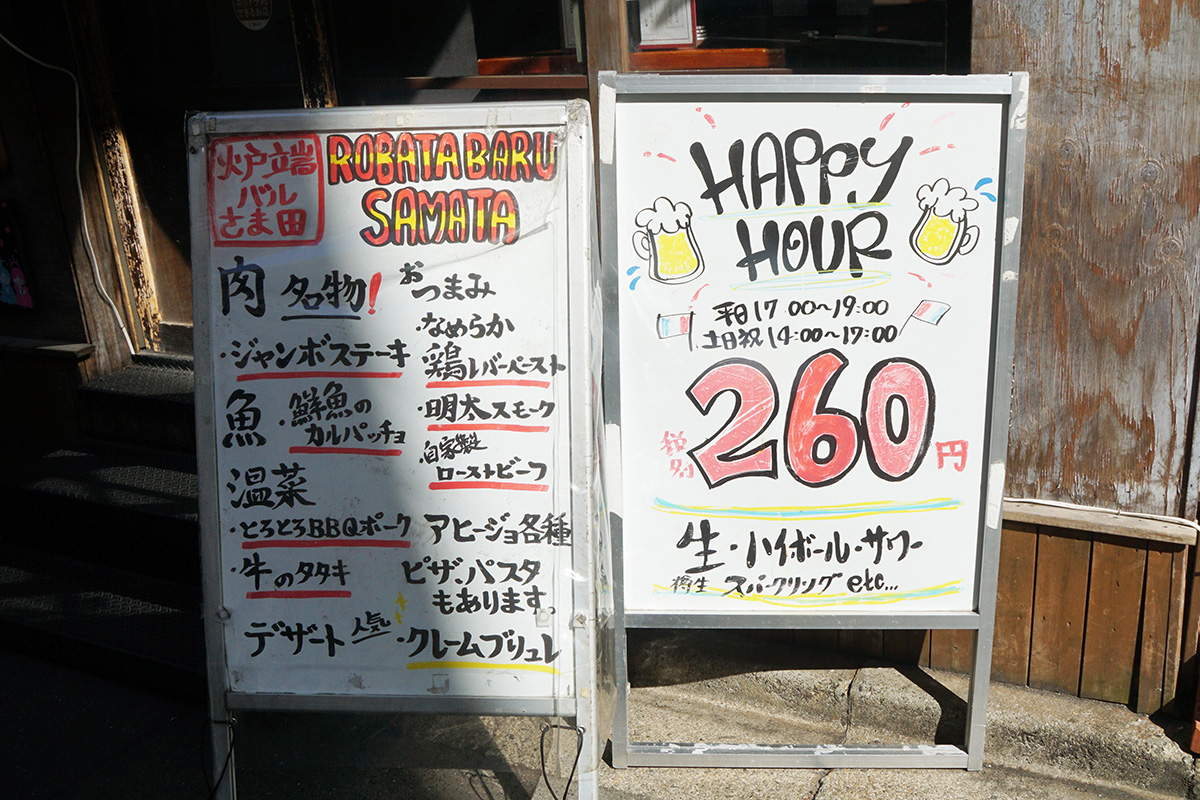 炉端
バル
さま田
ROBATA BARU
SAMATA
肉 名物!
・ジャンボステーキ
魚 ・鮮魚の
カルパッチョ
温菜
・とろとろBBQポーク
・牛のタタキ
おつまみ
・なめらか
鶏レバーペースト
・明太スモーク
・自家製
ローストビーフ
アヒージョ各種
ピザ、パスタ
もあります。
デザート 人気 ・クレームブリュレ
HAPPY
HOUR
平日17:00〜19:00
土日祝14:00〜17:00
税別 260円
生・ハイボール・サワー
樽生 スパークリング etc...